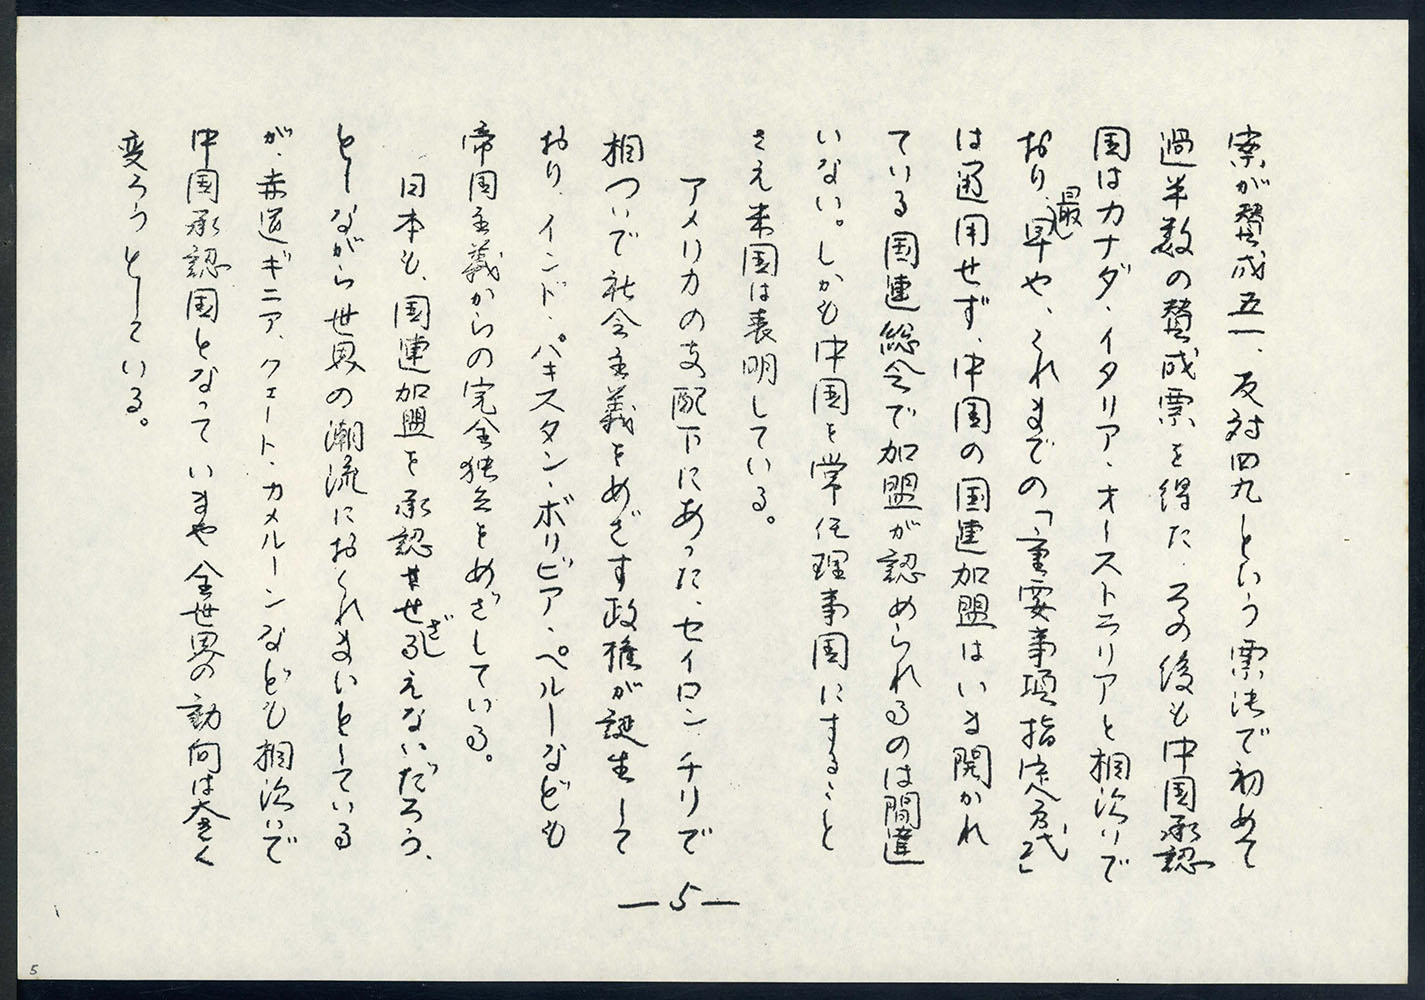 案が賛成五一、反対四九という票決で初めて
過半数の賛成票を得た。その後も中国承認
国はカナダ・イタリア・オーストラリアと相次いで
おり、最早や、これまでの「重要事項指定方式」
は通用せず、中国の国連加盟はいま開かれ
ている国連総会で加盟が認められるのは間違
いない。しかも中国を常任理事国にすること
さえ米国は表明している。
アメリカの支配下にあった、セイロン チリで
相ついで社会主義をめざす政権が誕生して
おり、インド・パキスタン・ボリビア・ペルーなども
帝国主義からの完全独立をめざしている。
日本も、国連加盟を承認せざるえないだろう、
としながら世界の潮流におくれまいとしている
が、赤道ギニア、クェート・カメルーンなども相次いで
中国承認国となって いまや全世界の動向は大きく
変ろうとしている。
—5—
5